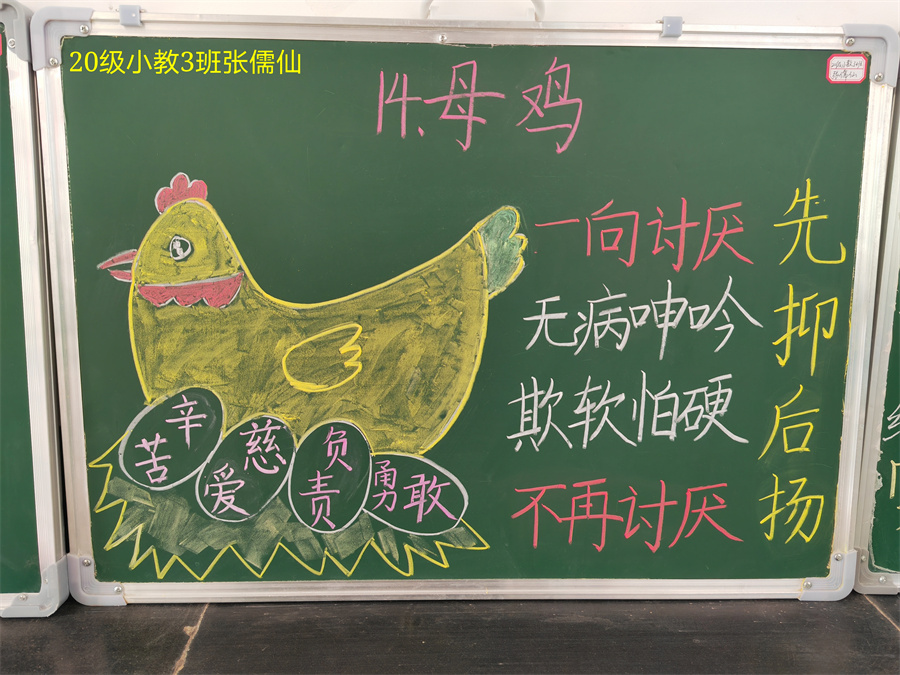 20级小教3班张儒仙
14.母鸡
一向讨厌
无病呻吟
欺软怕硬
不再讨厌
先抑后扬
辛苦
慈爱
负责
勇敢